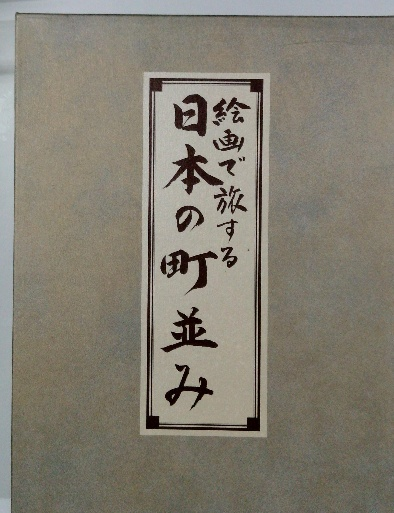 絵画で旅する
日本の町並み